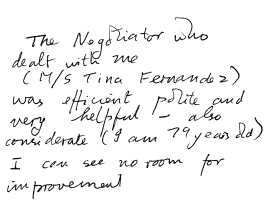 The Negotiator who
dealt with me
(M/S Tina Fernandez)
was efficient polite and
very helpful - also
considerate (I am 79 years old)
I can see no room for
improvement